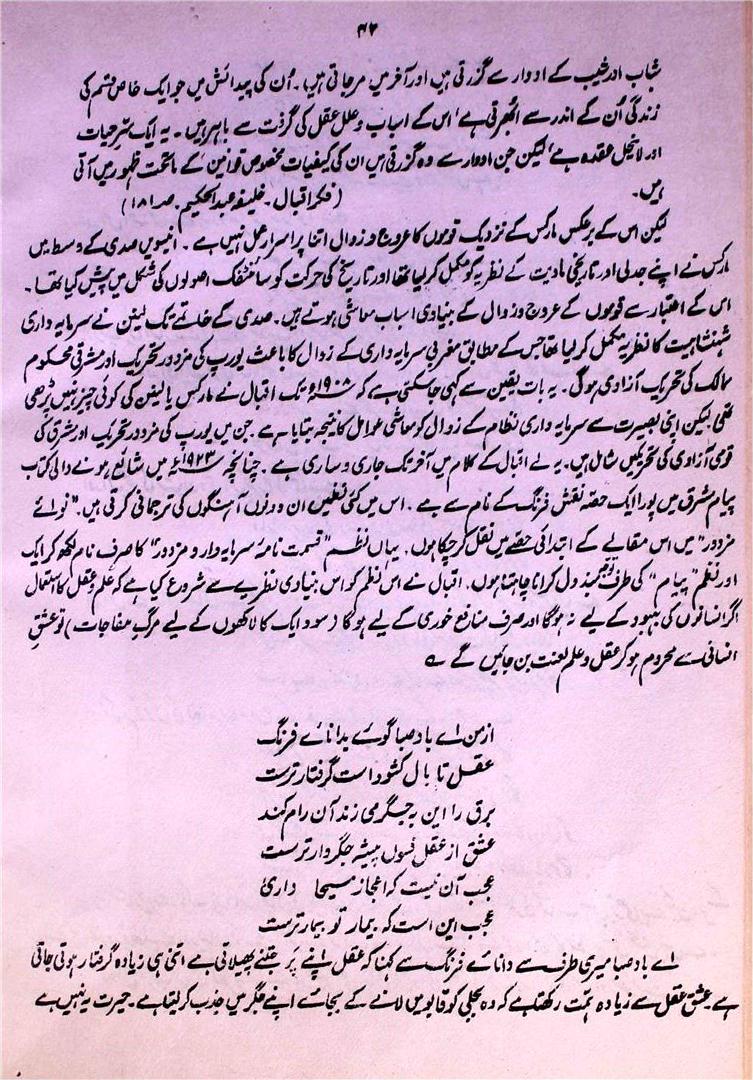 ۴۲
شباب اور شیب کے ادوار سے گزرتی ہیں اور آخر میں مر جاتی ہیں۔ اُن کی پیدائش میں جو ایک خاص قسم کی
زندگی اُن کے اندر سے اُبھرتی ہے' اس کے اسباب و علل عقل کی گرفت سے باہر ہیں۔ یہ ایک سّرِ حیات
اور لاینحل عقدہ ہے' لیکن جن ادوار سے وہ گزرتی ہیں ان کی کیفیات مخصوص قوانین کے ماتحت ظہور میں آتی
ہیں۔ (فکر اقبال۔ خلیفہ عبدالحکیم۔ صہ ۱۸۱)
لیکن اس کے برعکس مارکس کے نزدیک قوموں کا عروج و زوال اتنا پُر اسرار عمل نہیں ہے۔ انیسویں صدی کے وسط میں
مارکس نے اپنے جدلی اور تاریخی مادیت کے نظریہ کو مکمل کر لیا تھا اور تاریخ کی حرکت کو سائنٹفک اصولوں کی شکل میں پیش کیا تھا۔
اس کے اعتبار سے قوموں کے عروج و زوال کے بنیادی اسباب معاشی ہوتے ہیں۔ صدی کے خاتمے تک لینن نے سرمایہ داری
شہنشاہیت کا نظریہ مکمل کر لیا تھا جس کے مطابق مغربی سرمایہ داری کے زوال کا باعث یورپ کی مزدور تحریک اور مشرقی محکوم
ممالک کی تحریک آزادی ہوگی۔ یہ بات یقین سے کہی جا سکتی ہے کہ ۱۹۰۸ء تک اقبال نے مارکس یا لینن کی کوئی چیز نہیں پڑھی
تھی لیکن اپنی بصیرت سے سرمایہ داری نظام کے زوال کو معاشی عوامل کا نتیجہ بتایا ہے۔ جن میں یورپ کی مزدور تحریک اور مشرق کی
قومی آزادی کی تحریکیں شامل ہیں۔ یہ لے اقبال کے کلام میں آخر تک جاری و ساری ہے۔ چنانچہ ۱۹۲۳ء میں شائع ہونے والی کتاب
پیام مشرق میں پورا ایک حصہ نقش فرنگ کے نام سے ہے۔ اس میں کئی نظمیں ان دونوں آہنگوں کی ترجمانی کرتی ہیں۔ "نوائے
مزدور" میں اس مقالے کے ابتدائی حصے میں نقل کر چکا ہوں۔ یہاں نظم "قسمت نامۂ سرمایہ دار و مزدور" کا صرف نام لکھ کر ایک
اور نظم "پیام" کی طرف توجہ مبذول کرانا چاہتا ہوں۔ اقبال نے اس نظم کو اس بنیادی نظریے سے شروع کیا ہے کہ علم و عقل کا استعمال
اگر انسانوں کی بہبود کے لیے نہ ہوگا اور صرف منافع خوری کے لیے ہوگا (سود ایک کا لاکھوں کے لیے مرگ مفاجات) تو عشقِ
انسانی سے محروم ہو کر عقل و علم لعنت بن جائیں گے ؎
از من اے باد صبا گوے بدانائے فرنگ
عقل تا بال کشود است گرفتار ترست
برق را ایں بہ جگر می زند آن رام کند
عشق از عقل فسوں پیشہ جگردار ترست
عجب آن نیست کہ اعجاز مسیحا داری
عجب این است کہ بیمار تو بیمار ترست
اے باد صبا میری طرف سے دانائے فرنگ سے کہنا کہ عقل اپنے پَر جتنے پھیلاتی ہے اتنی ہی زیادہ گرفتار ہوتی جاتی
ہے۔ عشق عقل سے زیادہ ہمّت رکھتا ہے کہ وہ بجلی کو قابو میں لانے کے بجائے اپنے جگر میں جذب کر لیتا ہے۔ حیرت یہ نہیں ہے